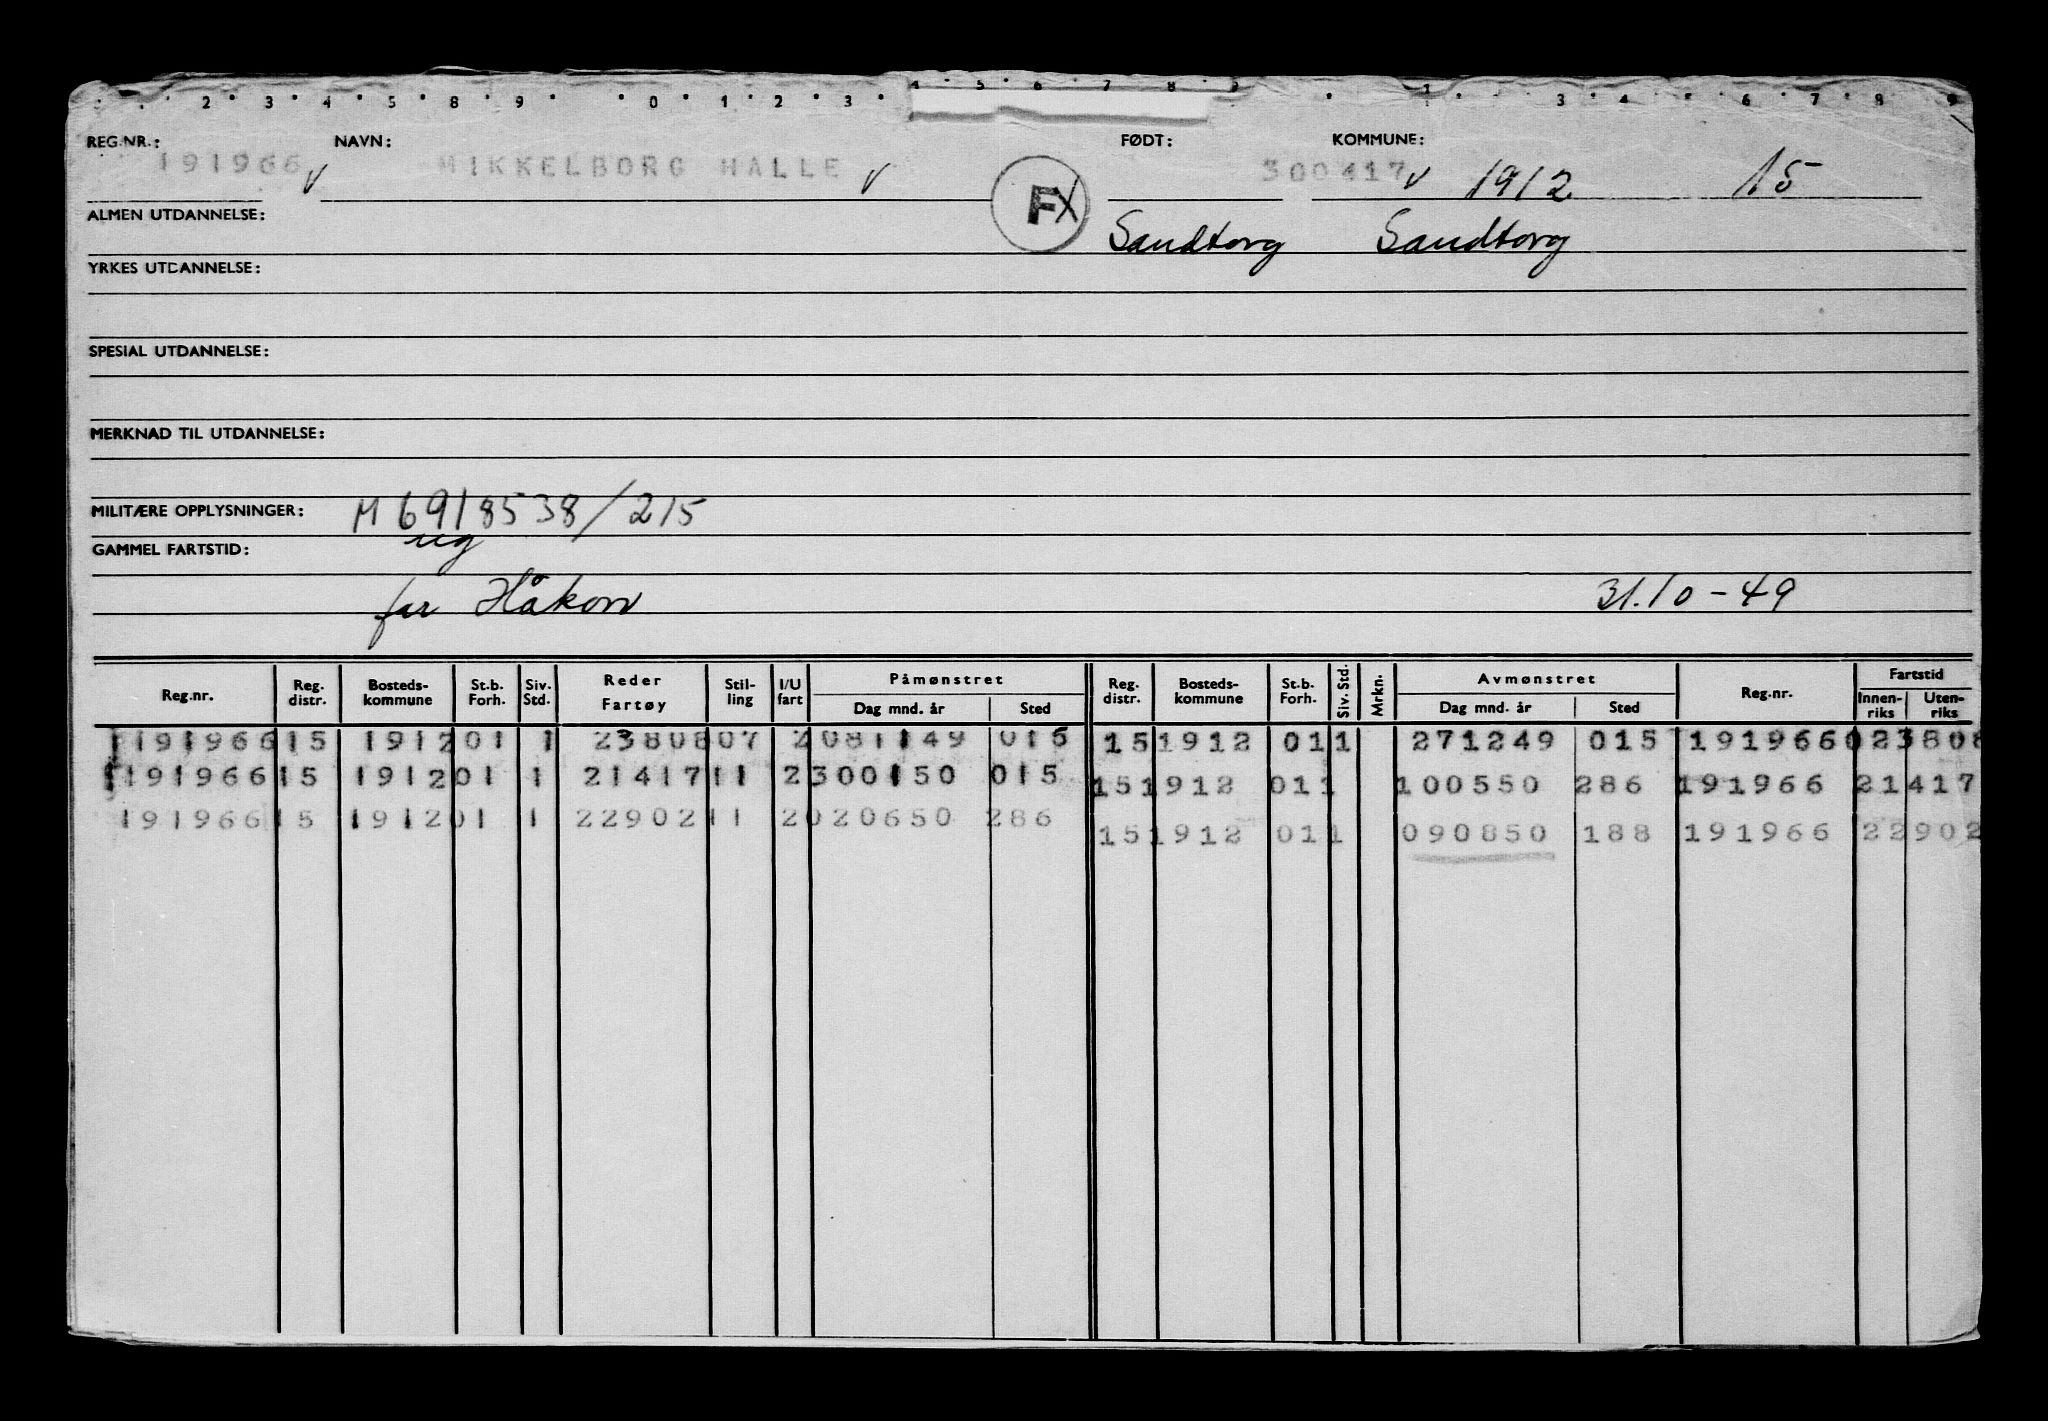 2 3 4 5 8 9 0 1 2 3 4 5 6 7 8 9 1 3 4 5 6 7 8 9
REG.NR.: NAVN: FØDT: KOMMUNE:
191966 v MIKKELBORG HALLE v FX 300417 v 1912 15
ALMEN UTDANNELSE: Sandtorg Sandtorg
YRKES UTDANNELSE:
SPESIAL UTDANNELSE:
MERKNAD TIL UTDANNELSE:
MILITÆRE OPPLYSNINGER: M 6918538/215
ug
GAMMEL FARTSTID:
far Håkon 31.10-49
Reg.nr. Reg. distr. Bosteds-kommune St.b. Forh. Siv. Std. Reder Fartøy Stil-ling I/U fart Påmønstret Dag mnd. år Sted Reg. distr. Bosteds-kommune St.b. Forh. Siv. Std. Mrkn. Avmønstret Dag mnd. år Sted Reg.nr. Fartstid Innen-riks Uten-riks
191966 15 1912 01 1 23808 07 2 081149 015 15 1912 01 1 271249 015 191966 023808
191966 15 1912 01 1 21417 11 2 300150 015 15 1912 01 1 100550 286 191966 21417
191966 15 1912 01 1 22902 11 2 020650 286 15 1912 01 1 090850 188 191966 22902